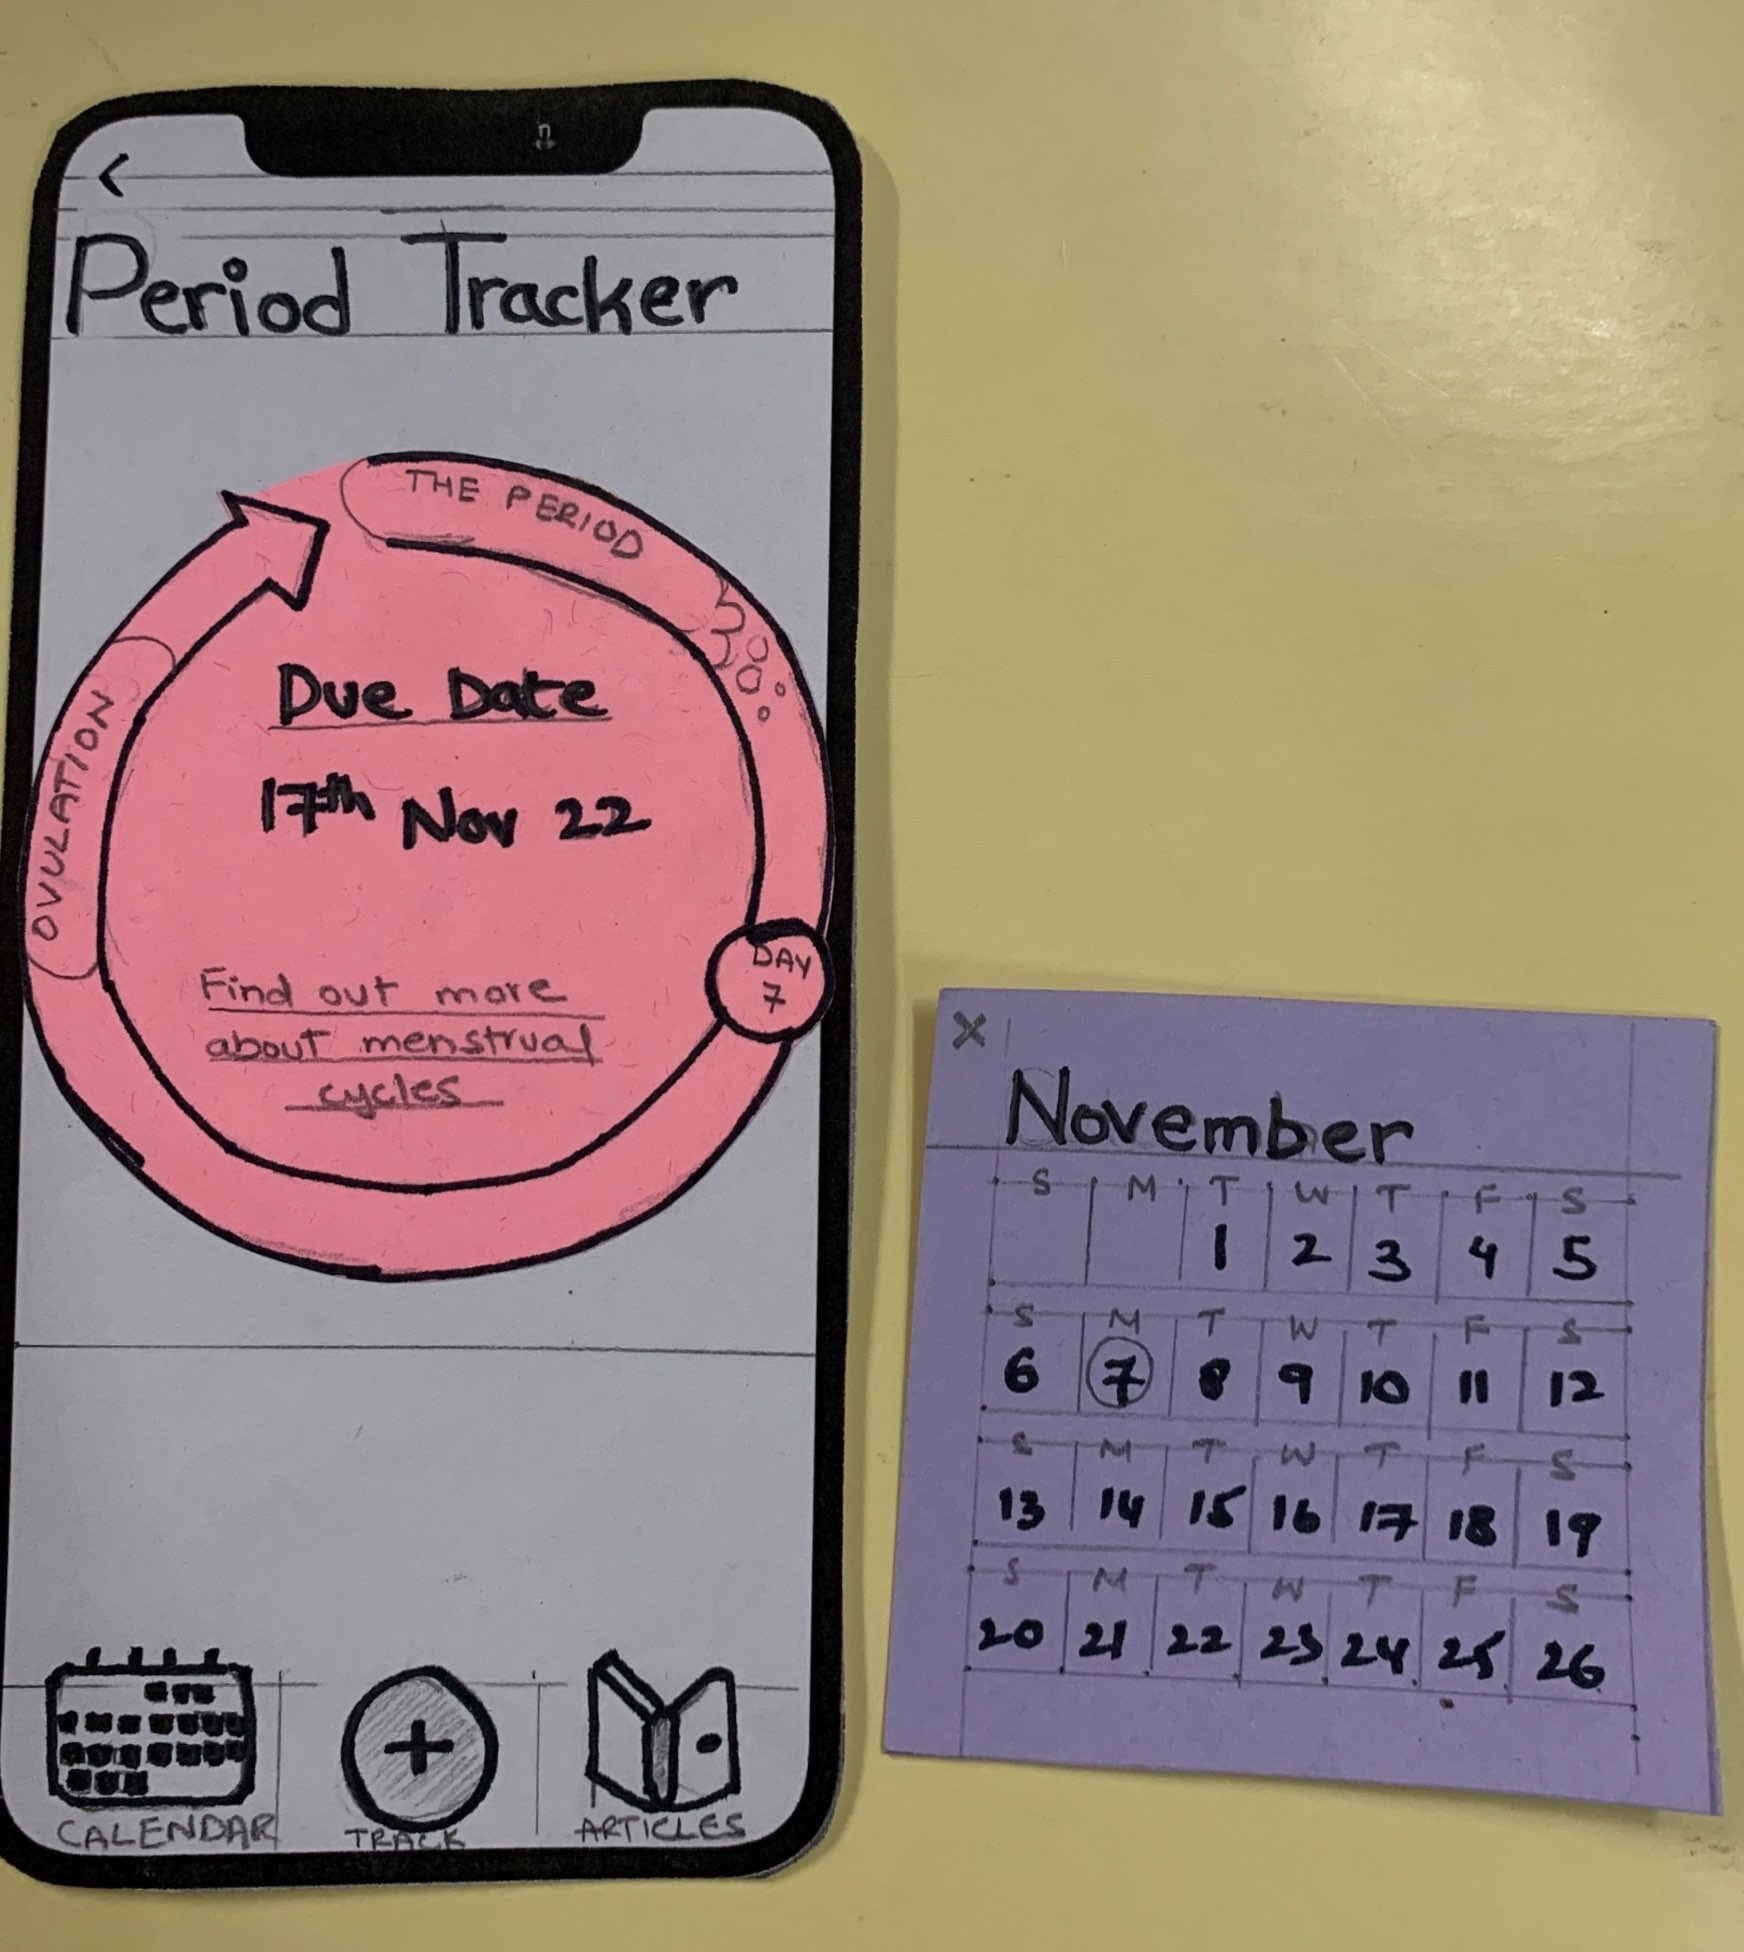 <
Period Tracker
THE PERIOD
OVULATION
Due Date
17th Nov 22
DAY
7
Find out more
about menstrual
cycles
CALENDAR
TRACK
ARTICLES
X
November
S M T W T F S
1 2 3 4 5
S M T W T F S
6 7 8 9 10 11 12
S M T W T F S
13 14 15 16 17 18 19
S M T W T F S
20 21 22 23 24 25 26